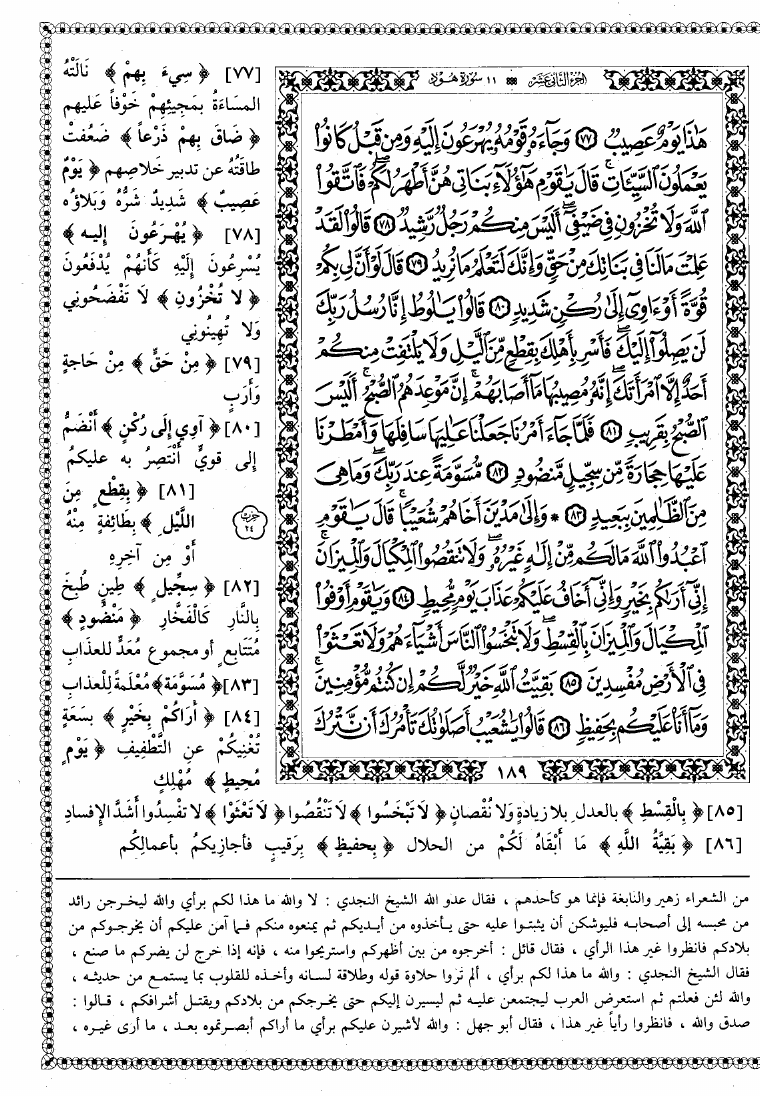 الجزء الثاني عشر ١١ سورة هود
هَذَا يَوْمٌ عَصِيبٌ ٧٧ وَجَاءَهُ قَوْمُهُ يُهْرَعُونَ إِلَيْهِ وَمِن قَبْلُ كَانُوا
يَعْمَلُونَ السَّيِّئَاتِ قَالَ يَاقَوْمِ هَؤُلَاءِ بَنَاتِي هُنَّ أَطْهَرُ لَكُمْ فَاتَّقُوا
اللَّهَ وَلَا تُخْزُونِ فِي ضَيْفِي أَلَيْسَ مِنكُمْ رَجُلٌ رَّشِيدٌ ٧٨ قَالُوا لَقَدْ
عَلِمْتَ مَا لَنَا فِي بَنَاتِكَ مِنْ حَقٍّ وَإِنَّكَ لَتَعْلَمُ مَا نُرِيدُ ٧٩ قَالَ لَوْ أَنَّ لِي بِكُمْ
قُوَّةً أَوْ ءَاوِي إِلَى رُكْنٍ شَدِيدٍ ٨٠ قَالُوا يَالُوطُ إِنَّا رُسُلُ رَبِّكَ
لَن يَصِلُوا إِلَيْكَ فَأَسْرِ بِأَهْلِكَ بِقِطْعٍ مِّنَ اللَّيْلِ وَلَا يَلْتَفِتْ مِنكُمْ
أَحَدٌ إِلَّا امْرَأَتَكَ إِنَّهُ مُصِيبُهَا مَا أَصَابَهُمْ إِنَّ مَوْعِدَهُمُ الصُّبْحُ أَلَيْسَ
الصُّبْحُ بِقَرِيبٍ ٨١ فَلَمَّا جَاءَ أَمْرُنَا جَعَلْنَا عَالِيَهَا سَافِلَهَا وَأَمْطَرْنَا
عَلَيْهَا حِجَارَةً مِّن سِجِّيلٍ مَّنضُودٍ ٨٢ مُّسَوَّمَةً عِندَ رَبِّكَ وَمَا هِيَ
مِنَ الظَّالِمِينَ بِبَعِيدٍ ٨٣ * وَإِلَى مَدْيَنَ أَخَاهُمْ شُعَيْبًا قَالَ يَاقَوْمِ
اعْبُدُوا اللَّهَ مَا لَكُم مِّنْ إِلَهٍ غَيْرُهُ وَلَا تَنقُصُوا الْمِكْيَالَ وَالْمِيزَانَ
إِنِّي أَرَاكُم بِخَيْرٍ وَإِنِّي أَخَافُ عَلَيْكُمْ عَذَابَ يَوْمٍ مُّحِيطٍ ٨٤ وَيَاقَوْمِ أَوْفُوا
الْمِكْيَالَ وَالْمِيزَانَ بِالْقِسْطِ وَلَا تَبْخَسُوا النَّاسَ أَشْيَاءَهُمْ وَلَا تَعْثَوْا
فِي الْأَرْضِ مُفْسِدِينَ ٨٥ بَقِيَّتُ اللَّهِ خَيْرٌ لَّكُمْ إِن كُنتُم مُّؤْمِنِينَ
وَمَا أَنَا عَلَيْكُم بِحَفِيظٍ ٨٦ قَالُوا يَاشُعَيْبُ أَصَلَوَاتُكَ تَأْمُرُكَ أَن نَّتْرُكَ
١٨٩
[٧٧] ﴿ سِيءَ بِهِمْ ﴾ نَالَتْهُ
المسَاءَةُ بمَجِيئِهِمْ خَوْفاً عليهم
﴿ ضَاقَ بِهِمْ ذَرْعاً ﴾ ضَعُفَتْ
طاقَتُهُ عن تدبير خَلاصِهم ﴿ يَوْمٌ
عَصِيبٌ ﴾ شَدِيدٌ شَرُّهُ وَبَلاؤُه
[٧٨] ﴿ يُهْرَعُونَ إليه ﴾
يُسْرِعُونَ إِلَيْهِ كَأَنَّهُمْ يُدْفَعُونَ
﴿ لا تُخْزُونِ ﴾ لَا تَفْضَحُوني
وَلا تُهِينُوني
[٧٩] ﴿ مِنْ حَقٍّ ﴾ مِنْ حَاجةٍ
وَأَرَبٍ
[٨٠] ﴿ آوِي إِلَى رُكْنٍ ﴾ أَنْضَمُّ
إلى قويٍّ أَنْتصِرُ به عليكُم
[٨١] ﴿ بِقِطْعٍ مِنَ
اللَّيْلِ ﴾ بِطَائِفةٍ مِنْهُ
أَوْ مِن آخِرِهِ
حزب ٢٤
[٨٢] ﴿ سِجِّيلٍ ﴾ طِينٍ طُبِخَ
بِالنَّارِ كَالْفَخَّارِ ﴿ مَنْضُودٍ ﴾
مُتَتَابِعٍ أو مجموعٍ مُعَدٍّ للعذابِ
[٨٣] ﴿ مُسَوَّمَةً ﴾ مُعْلَمةً لِلْعذابِ
[٨٤] ﴿ أَرَاكُمْ بِخَيْرٍ ﴾ بسَعَةٍ
تُغْنِيكُمْ عنِ التَّطْفِيفِ ﴿ يَوْمٍ
مُحِيطٍ ﴾ مُهْلِكٍ
[٨٥] ﴿ بِالْقِسْطِ ﴾ بالعدل بلا زيادةٍ وَلا نُقْصانٍ ﴿ لَا تَبْخَسُوا ﴾ لَا تَنْقُصُوا ﴿ لَا تَعْثَوْا ﴾ لا تفْسِدُوا أَشَدَّ الإفسادِ
[٨٦] ﴿ بَقِيَّةُ اللَّهِ ﴾ مَا أَبْقَاهُ لَكُمْ من الحلال ﴿ بِحفيظٍ ﴾ بِرَقيبٍ فأجازِيكُم بأعمالِكُم
من الشعراء زهير والنابغة فإنما هو كأحدهم ، فقال عدو الله الشيخ النجدي : لا والله ما هذا لكم برأي والله ليخرجن رائد
من محبسه إلى أصحابه فليوشكن أن يثبتوا عليه حتى يأخذوه من أيديكم ثم يمنعوه منكم فما آمن عليكم أن يخرجوكم من
بلادكم فانظروا غير هذا الرأي ، فقال قائل : أخرجوه من بين أظهركم واستريحوا منه ، فإنه إذا خرج لن يضركم ما صنع ،
فقال الشيخ النجدي : والله ما هذا لكم برأي ، ألم تروا حلاوة قوله وطلاقة لسانه وأخذه للقلوب بما يستمع من حديثه ،
والله لئن فعلتم ثم استعرض العرب ليجتمعن عليه ثم ليسيرن إليكم حتى يخرجكم من بلادكم ويقتل أشرافكم ، قالوا :
صدق والله ، فانظروا رأياً غير هذا ، فقال أبو جهل : والله لأشيرن عليكم برأي ما أراكم أبصرتموه بعد ، ما أرى غيره ،